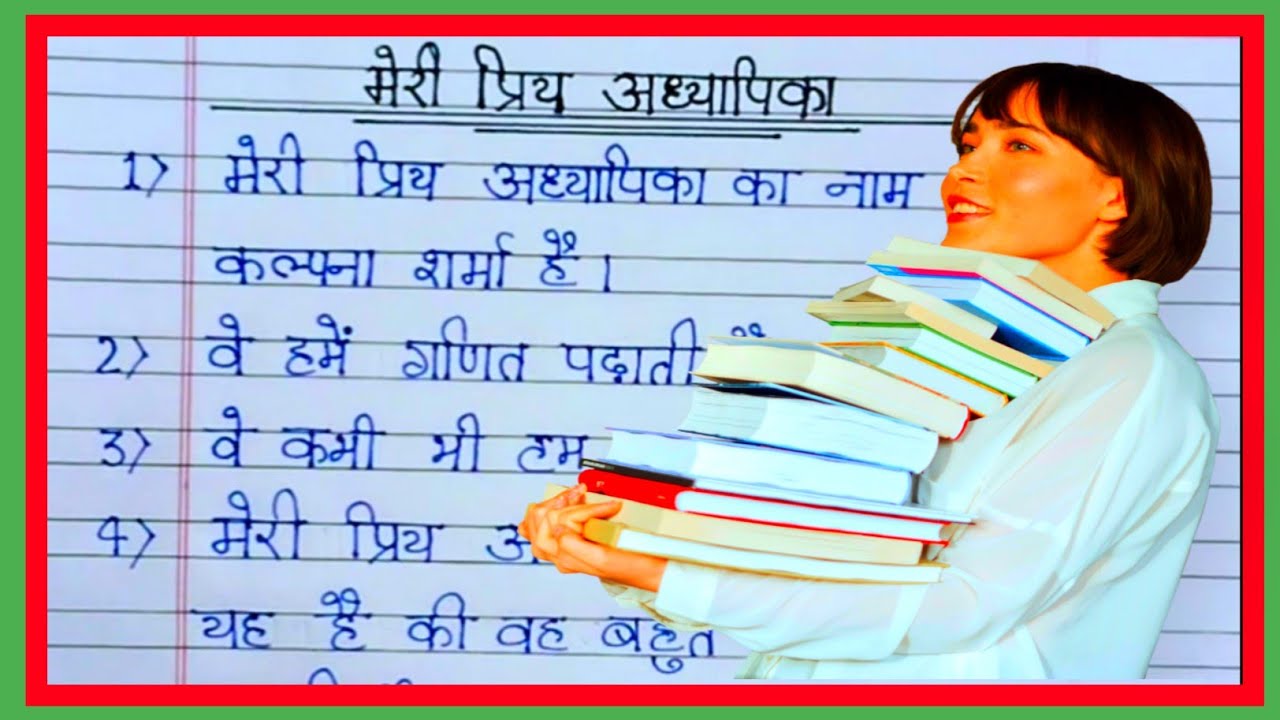 मेरी प्रिय अध्यापिका
1) मेरी प्रिय अध्यापिका का नाम
कल्पना शर्मा है।
2) वे हमें गणित पढ़ाती है
3) वे कभी भी हम
4) मेरी प्रिय अ
यह है की वह बहुत